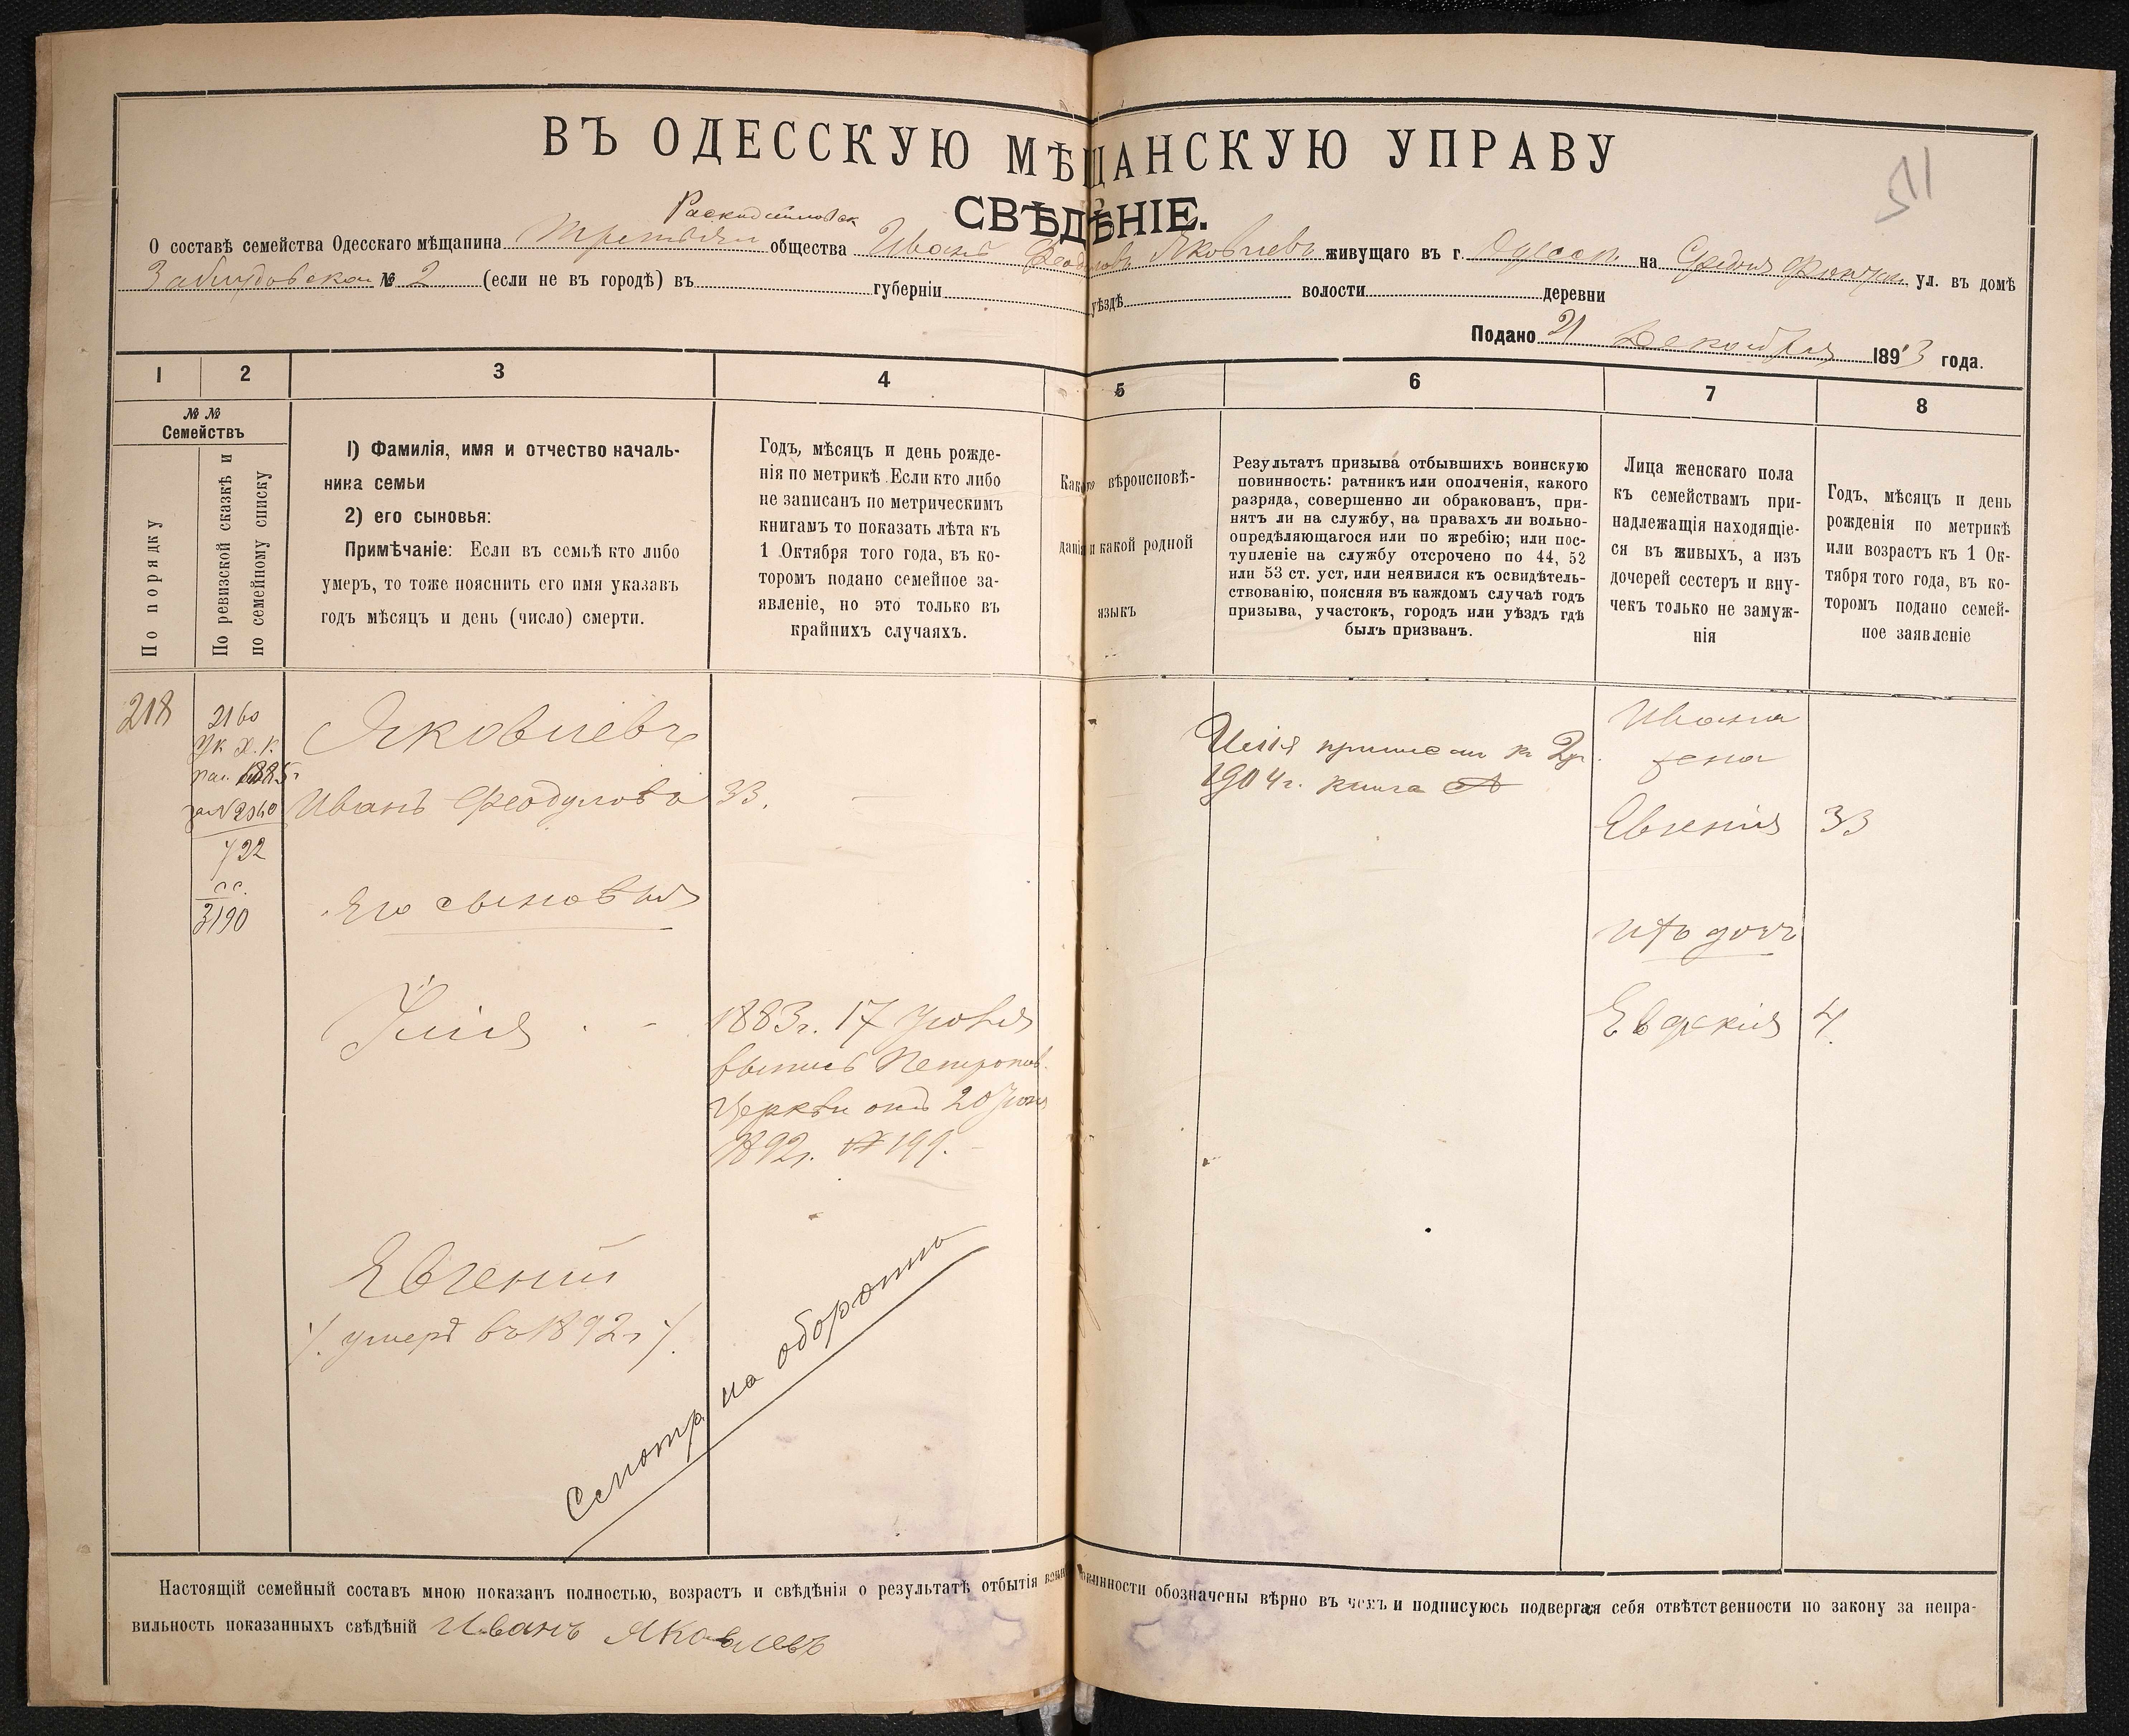 ВЪ ОДЕССКУЮ МѢЩАНСКУЮ УПРАВУ
51
СВѢДѢНІЕ.
О составѣ семейства Одесскаго мѣщанина общества Иванъ Феодуловъ Яковлевъ живущаго въ г. Одессѣ на Средній Фонтан ул. въ домѣ
№ 2 (если не въ городѣ) въ губерніи уѣздѣ волости деревни
Подано 21 Декабря 1893 года.
1 2 3 4 5 6 7 8
№ №
Семействъ
По порядку
По ревизской сказкѣ и
по семейному списку
1) Фамилія, имя и отчество началь-
ника семьи
2) его сыновья:
Примѣчаніе: Если въ семьѣ кто либо
умеръ, то тоже пояснить его имя указавъ
годъ мѣсяцъ и день (число) смерти.
Годъ, мѣсяцъ и день рожде-
нія по метрикѣ. Если кто либо
не записанъ по метрическимъ
книгамъ то показать лѣта къ
1 Октября того года, въ ко-
торомъ подано семейное за-
явленіе, но это только въ
крайнихъ случаяхъ.
Какого вѣроисповѣ-
данія и какой родной
языкъ
Результатъ призыва отбывшихъ воинскую
повинность: ратникъ или ополченія, какого
разряда, совершенно ли обракованъ, при-
нятъ ли на службу, на правахъ ли вольно-
опредѣляющагося или по жребію; или пос-
тупленіе на службу отсрочено по 44, 52
или 53 ст. уст. или неявился къ освидѣтель-
ствованію, поясняя въ каждомъ случаѣ годъ
призыва, участокъ, городъ или уѣздъ гдѣ
былъ призванъ.
Лица женскаго пола
къ семействамъ при-
надлежащія находящіе-
ся въ живыхъ, а изъ
дочерей сестеръ и вну-
чекъ только не замуж-
нія
Годъ, мѣсяцъ и день
рожденія по метрикѣ
или возрастъ къ 1 Ок-
тября того года, въ ко-
торомъ подано семей-
ное заявленіе
218
2160
1885г
за № 2940
722
сс.
3190
Яковлевъ
Иванъ Феодуловъ 33.
Его сыновья
Илія
1883г. 17 Іюня
выпись Петропав.
Церкви отъ 20 Іюня
1892г. № 199.
Евгеній
/. умеръ въ 1892г /.
Смотр. на оборотѣ
Илія приписан к
1904г. книга
Ивана
жена
Евгенія 33
ихъ дочь
Евдокія 4.
Настоящій семейный составъ мною показанъ полностью, возрастъ и свѣдѣнія о результатѣ отбытія воин повинности обозначены вѣрно въ чемъ и подписуюсь подвергая себя отвѣтственности по закону за непра-
вильность показанныхъ свѣдѣній Иванъ Яковлевъ